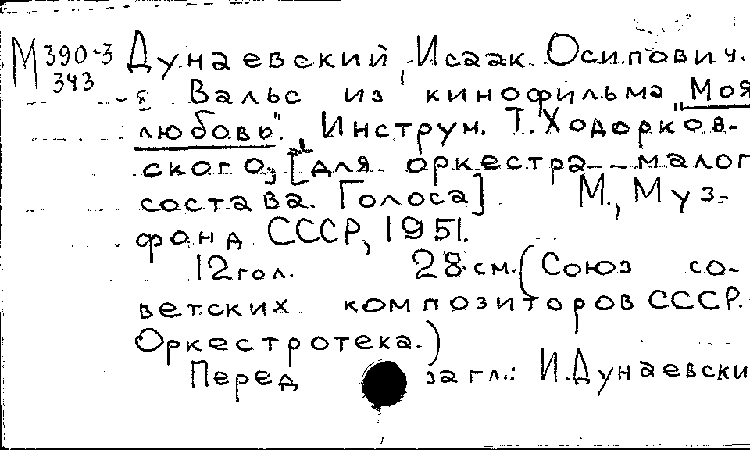 М 390-3 Дунаевский, Исаак Осипович.
343
Вальс из кинофильма "Моя
любовь". Инструм. Т. Ходорков-
ского, [для оркестра малог
состава. Голоса]. М., Муз-
фонд СССР, 1951.
12 гол. 28 см. (Союз со-
ветских композиторов СССР.
Оркестротека.)
Перед загл.: И. Дунаевски